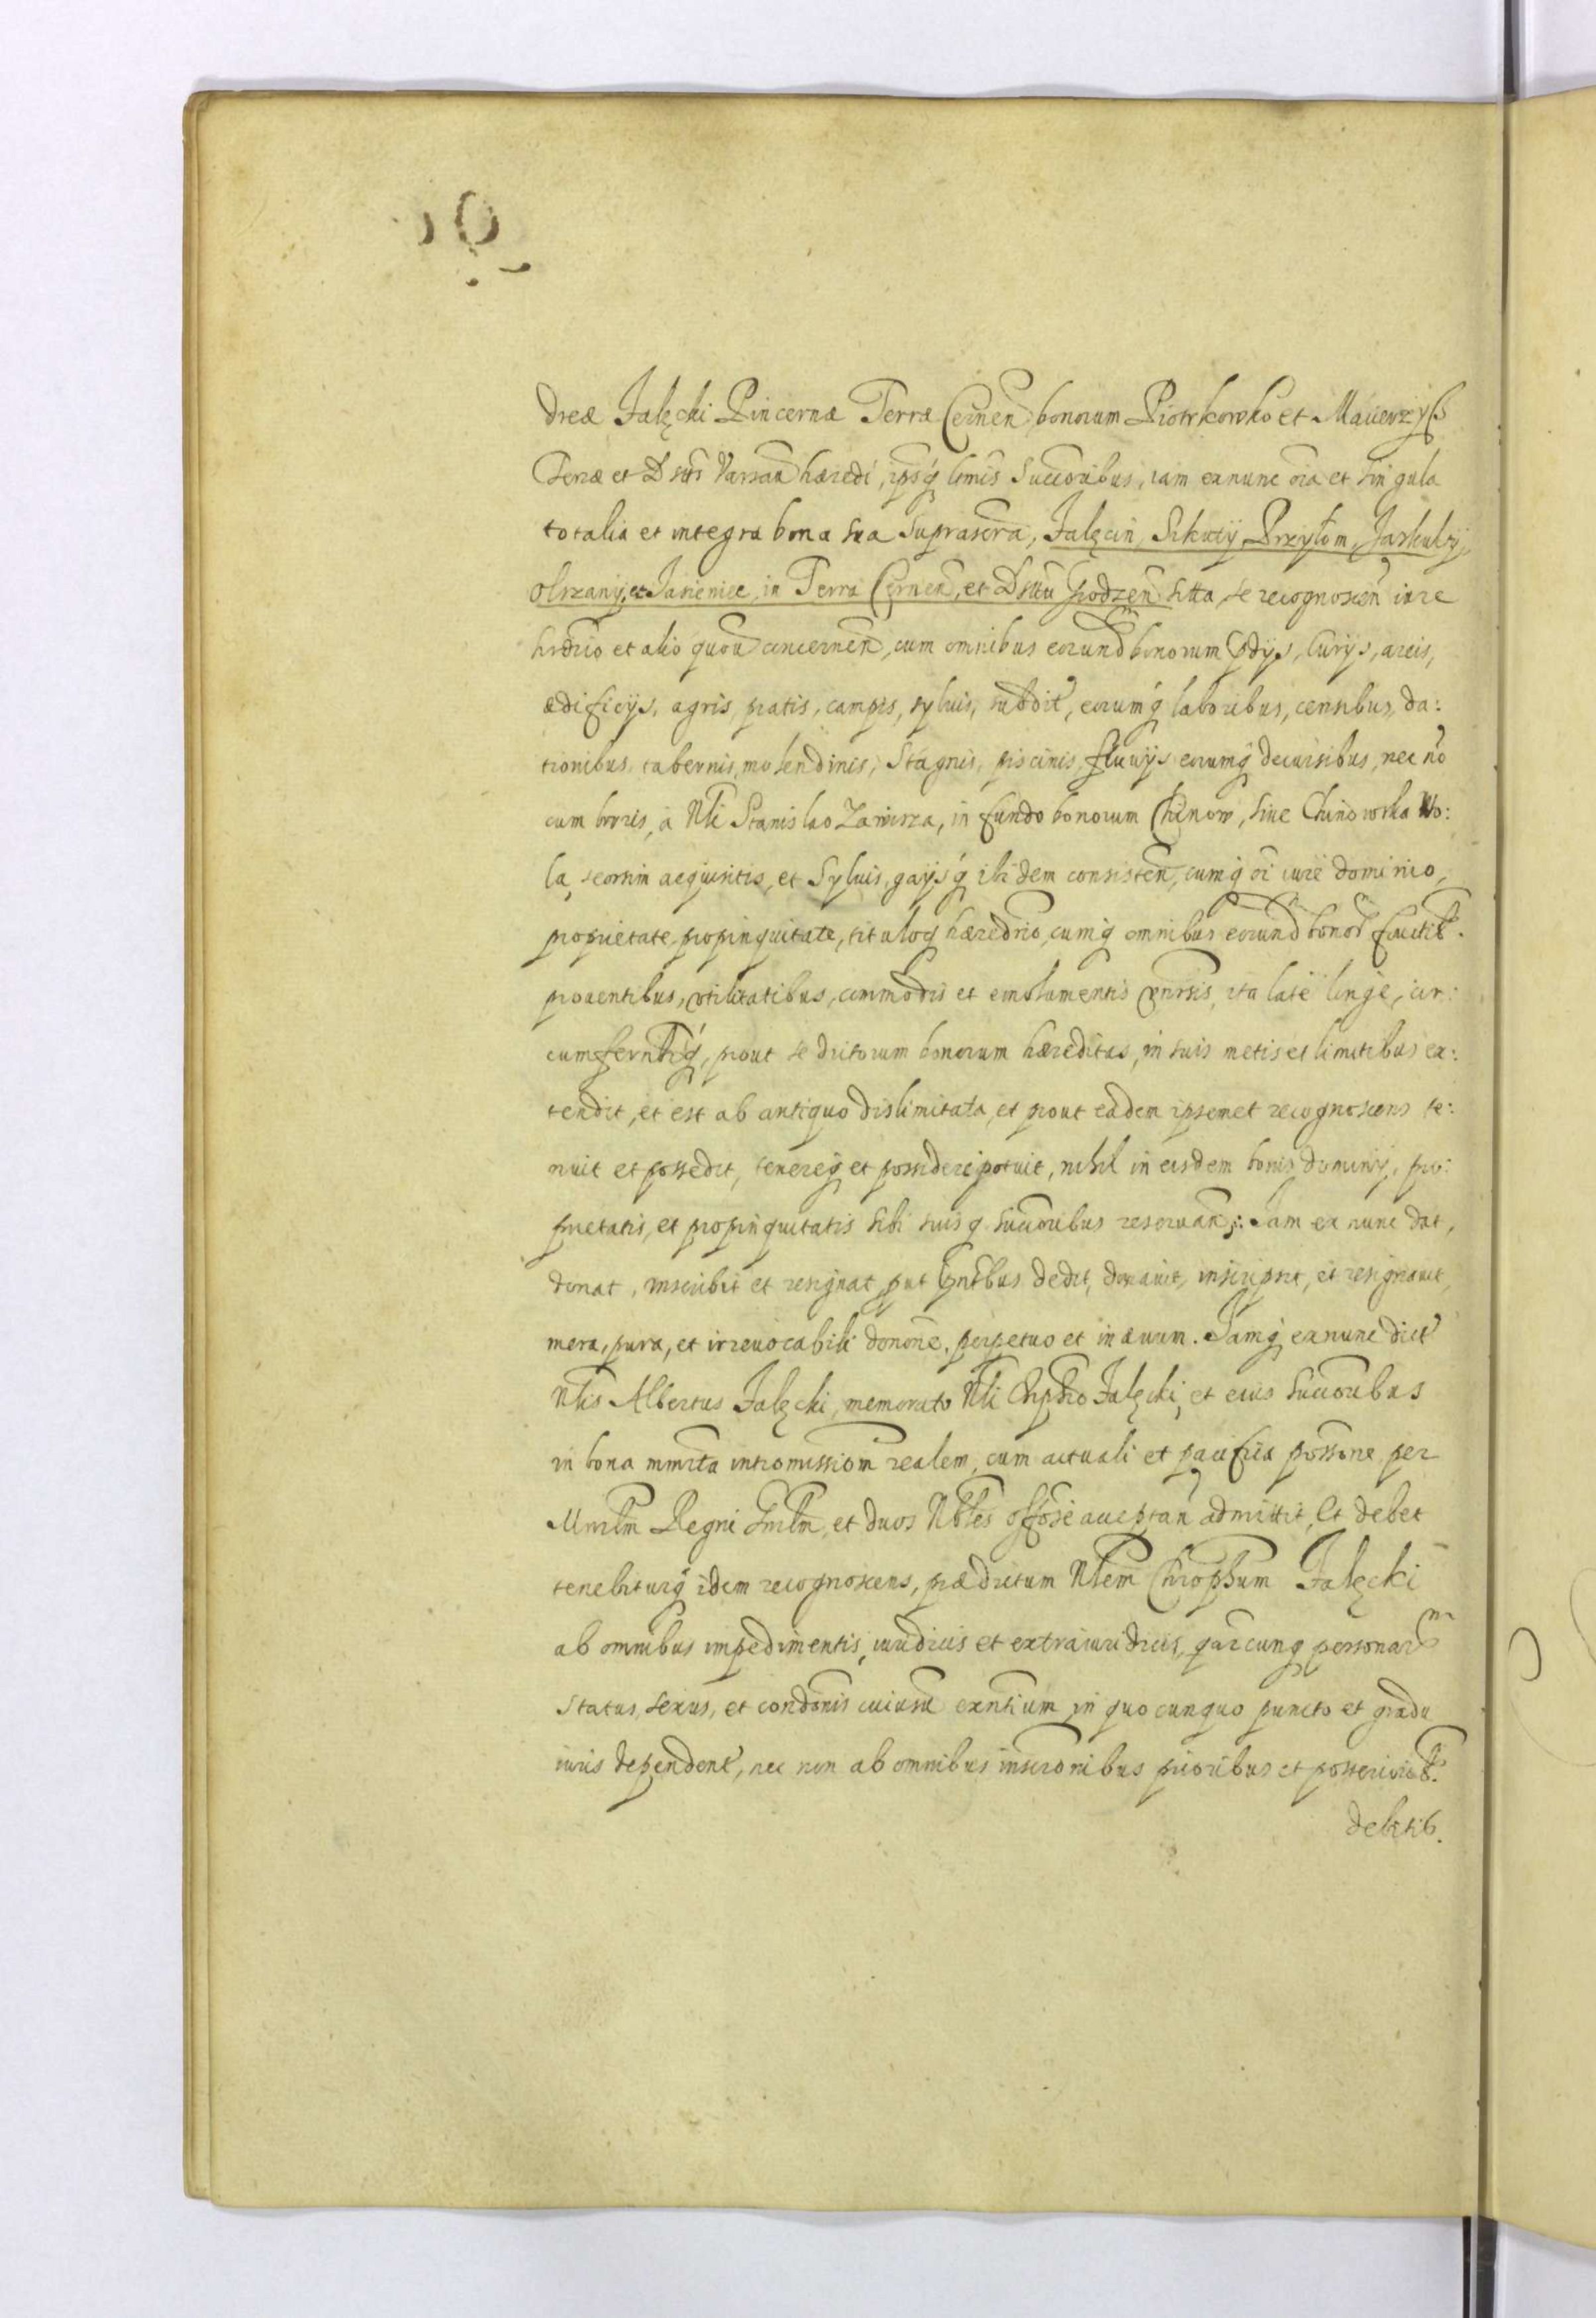 dreæ Jalęcki Pincernæ Terræ Cernen bonorum Piotrkowko et Macierzÿs
Terræ et Dsttus Varsau hæredi, ipsq limis Succoribus, iam exnunc oia et singula
totalia et integra bona sua suprascra, Jalęcin, Sikuty, Przyłom, Jarkuły,
Olszany, et Jasieniec, in Terra Cernen, et Dsttu Grodzen sitta, se recognoscen iure
hrdrio et alio quou concernen, cum omnibus eorund bonorum pdÿs, curÿs, areis,
ædificÿs, agris, pratis, campis, syluis, subdit, eorumq laboribus, censibus, da:
tionibus, tabernis, molendinis, Stagnis, piscinis, fluuÿs eorumq decursibus, nec no
cum boris, a Nli Stanislao Zawisza, in fundo bonorum Chinow, siue Chinowska Wo:
la, seorsim acquisitis, et Syluis, gaysq ibidem consisten, cumq oi iure dominio,
proprietate, propinquitate, tituloq hæredrio, cumq omnibus eorund bonor fructib.
prouentibus, vtilitatibus, commodis et emolumentis vnirsis, ita late longe, cir:
cumferntrq, prout se dictorum bonorum hæreditas, in suis metis et limitibus ex:
tendit, et est ab antiquo dislimitata, et prout eadem ipsemet recognoscens te:
nuit et possedit, tenereq et possidere potuit, nihil in eisdem bonis dominÿ, pro:
prietatis, et propinquitatis sibi suisq succoribus reseruan: Jam ex nunc dat,
donat, inscribit et resignat, put pntibus dedit, donauit, inscripsit, et resignauit,
mera, pura, et irreuocabili donone, perpetuo et in æuum. Jamq exnunc dict
Nlis Albertus Jalęcki, memorato Nli Chphro Jalęcki, et eius succoribus
in bona mmrta intromissiom realem, cum actuali et pacifica possone per
Mnrlm Regni Gnlm, et duos Nbles offose acceptan admittit, Et debet
tenebiturq idem recognoscens, prædictum Nlem Chrophum Jalęcki
ab omnibus impedimentis, iuridicis et extraiuridicis, qarcunq personar
status, sexus, et condonis cuiusu exntium, in quocunquo puncto et gradu
iuris dependent, nec non ab omnibus inscronibus prioribus et posteriorib.
debitib.